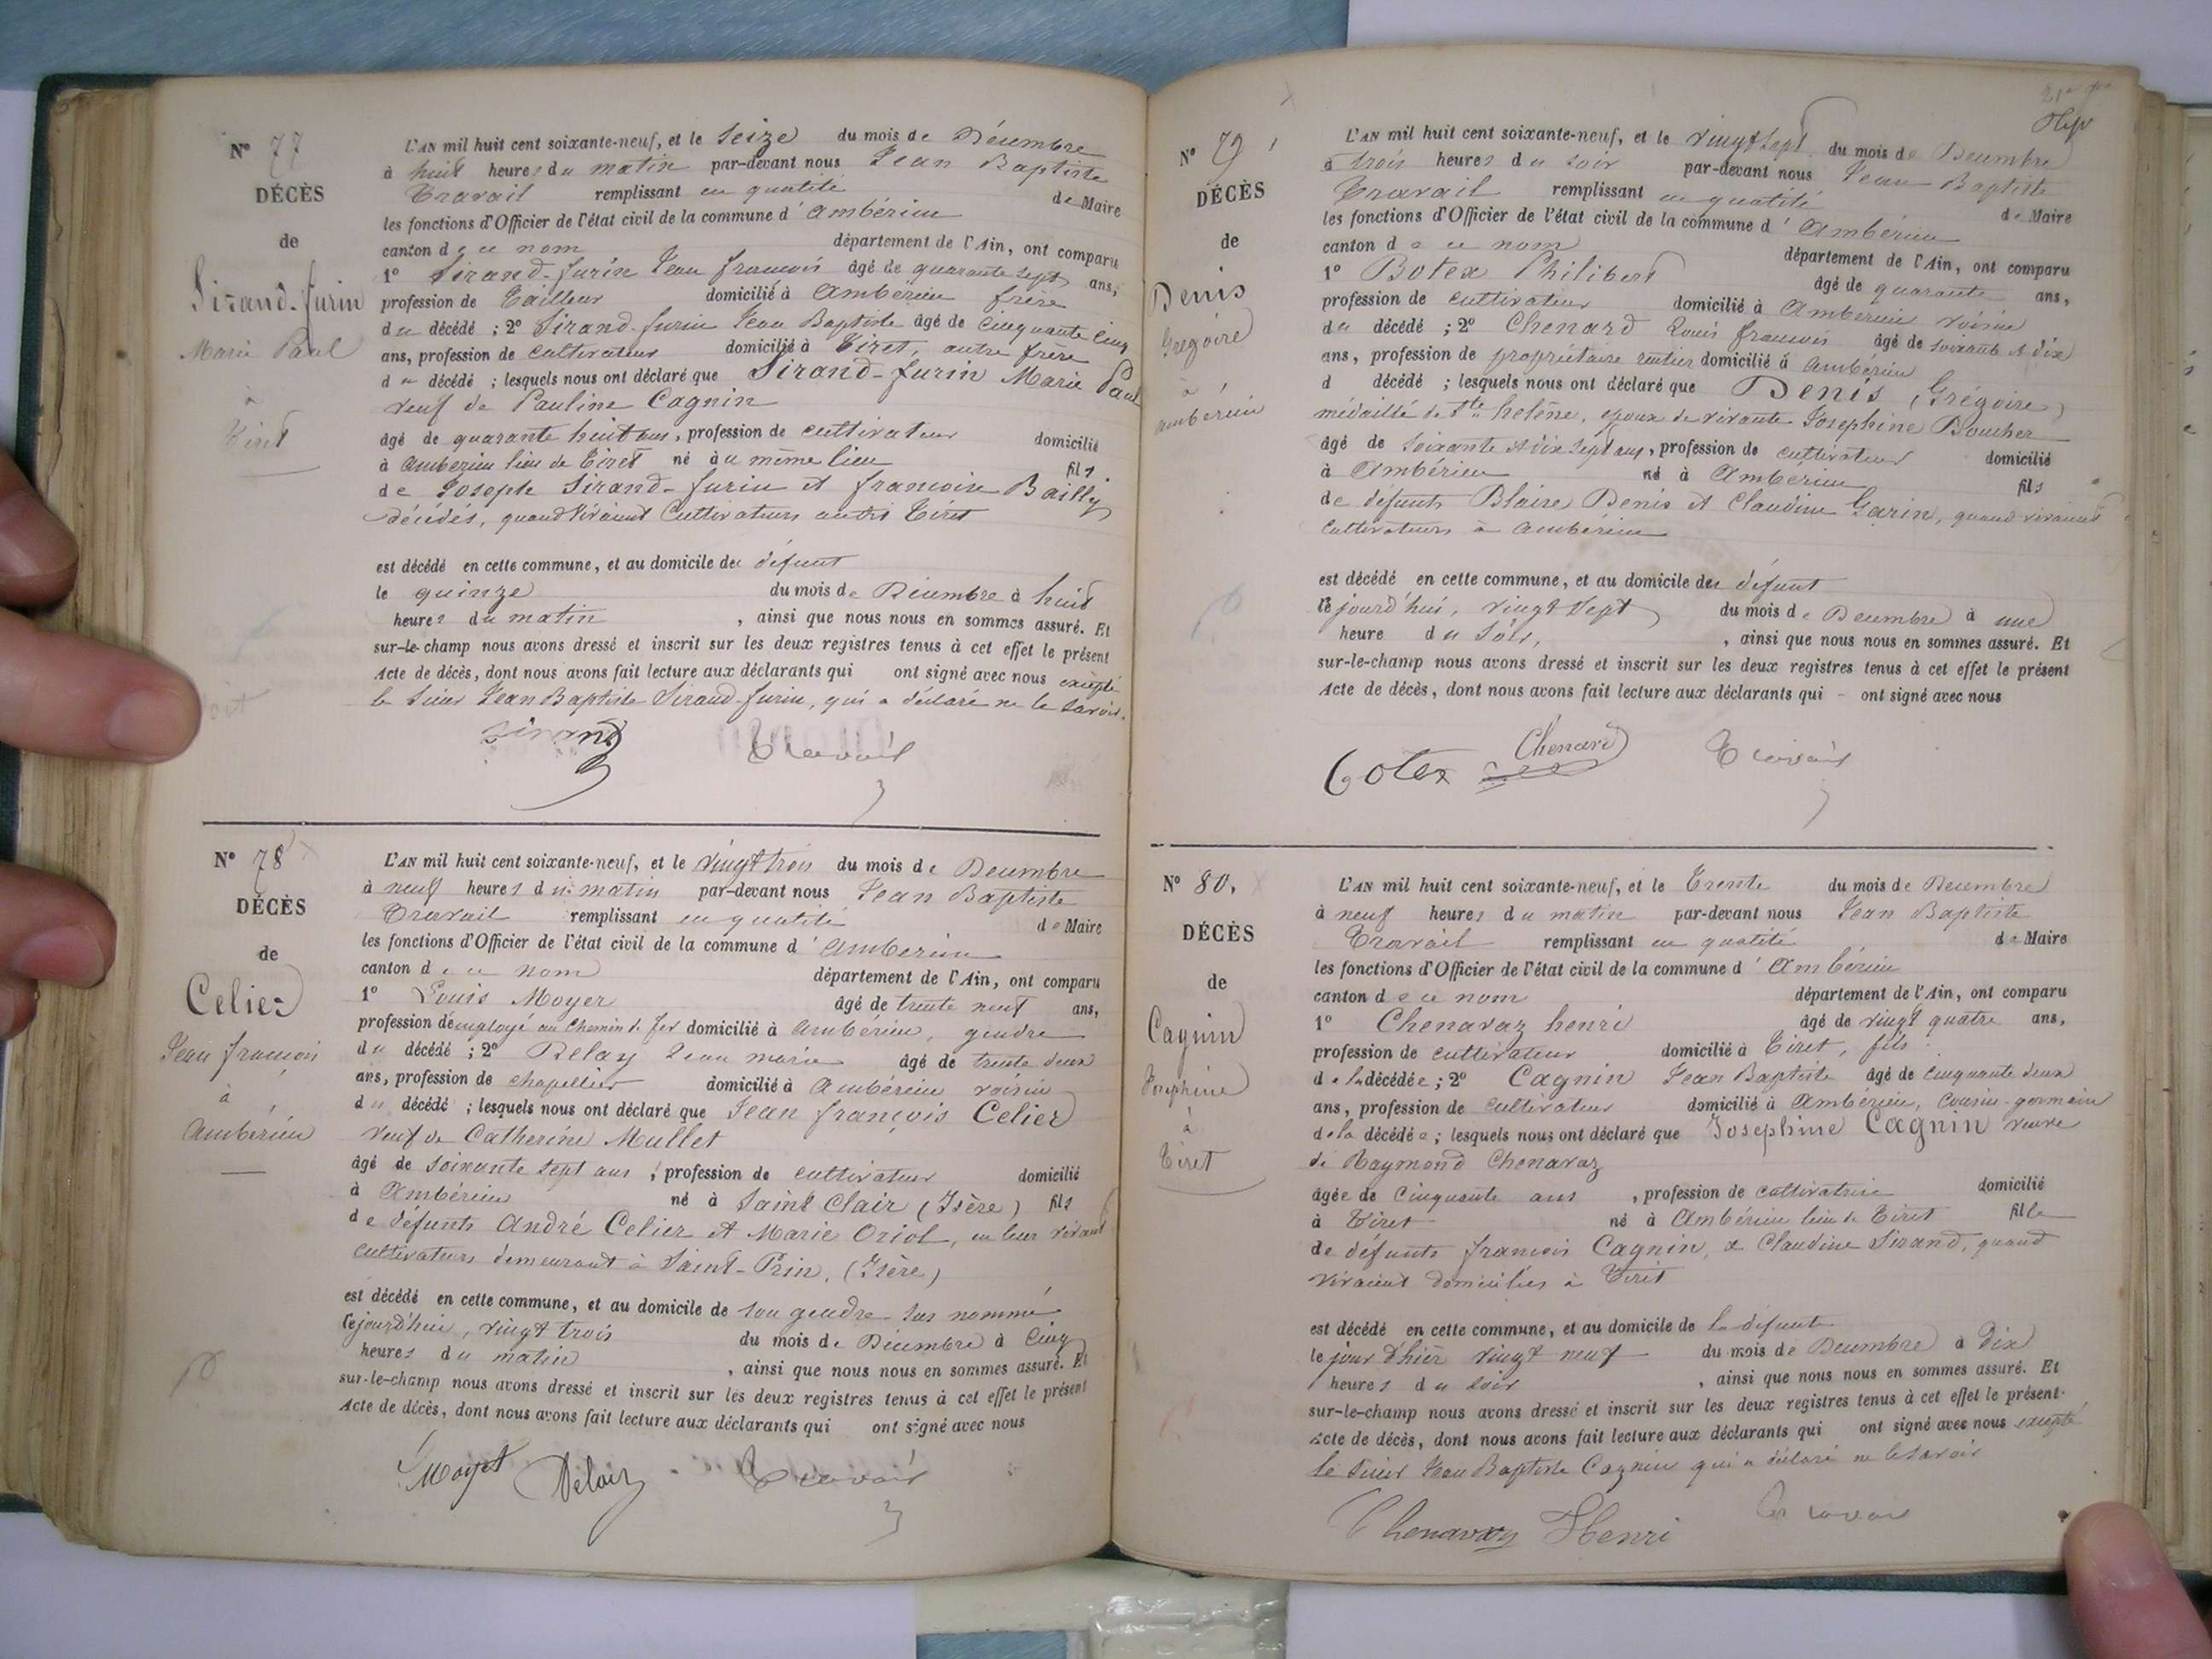 N° 77
DÉCÈS
de
Sirand-furin
Marie Paul
à
Tiret
L'AN mil huit cent soixante-neuf, et le Seize du mois de Décembre
à huit heures du matin par-devant nous Jean Baptiste
Travail remplissant en qualité de Maire
les fonctions d'Officier de l'état civil de la commune d'Ambérieu
canton de ce nom département de l'Ain, ont comparu
1° Sirand-furin Jean francois âgé de quarante sept ans,
profession de Tailleur domicilié à Ambérieu frère
du décédé ; 2° Sirand-furin Jean Baptiste âgé de Cinquante cinq
ans, profession de Cultivateur domicilié à Tiret, autre frère
du décédé ; lesquels nous ont déclaré que Sirand-furin Marie Paul
veuf de Pauline Cagnin
âgé de quarante huit ans, profession de cultivateur domicilié
à Amberieu lieu de Tiret né au même lieu fils
de Joseph Sirand-furin et francoise Bailly
décédés, quand vivaient Cultivateurs audit Tiret
est décédé en cette commune, et au domicile du défunt
le quinze du mois de Décembre à huit
heures du matin , ainsi que nous nous en sommes assuré. Et
sur-le-champ nous avons dressé et inscrit sur les deux registres tenus à cet effet le présent
Acte de décès, dont nous avons fait lecture aux déclarants qui ont signé avec nous excepté
le Sieur Jean Baptiste Sirand-furin, qui a déclaré ne le savoir.
Sirand Travail
N° 78
DÉCÈS
de
Celier
Jean françois
à
Ambérieu
L'AN mil huit cent soixante-neuf, et le vingt trois du mois de Decembre
à neuf heures du matin par-devant nous Jean Baptiste
Travail remplissant en qualité de Maire
les fonctions d'Officier de l'état civil de la commune d'Amberieu
canton de ce nom département de l'Ain, ont comparu
1° Louis Moyer âgé de trente neuf ans,
profession d'employé au Chemin de fer domicilié à Ambérieu, gendre
du décédé ; 2° Delay Jean marie âgé de trente deux
ans, profession de chapellier domicilié à Ambérieu voisin
du décédé ; lesquels nous ont déclaré que Jean françois Celier
veuf de Catherine Mullet
âgé de soixante sept ans, profession de cultivateur domicilié
à Ambérieu né à Saint Clair (Isère) fils
de défunts André Celier et Marie Oriol, en leur vivant
cultivateurs demeurant à Saint-Prin, (Isère)
est décédé en cette commune, et au domicile de son gendre sus nommé
cejourd'hui, vingt trois du mois de Décembre à Cinq
heures du matin , ainsi que nous nous en sommes assuré. Et
sur-le-champ nous avons dressé et inscrit sur les deux registres tenus à cet effet le présent
Acte de décès, dont nous avons fait lecture aux déclarants qui ont signé avec nous
Moyet Delaiz Travail
N° 79
DÉCÈS
de
Denis
Grégoire
à
Ambérieu
L'AN mil huit cent soixante-neuf, et le vingt sept du mois de Decembre
à trois heures du soir par-devant nous Jean Baptiste
Travail remplissant en qualité de Maire
les fonctions d'Officier de l'état civil de la commune d'Ambérieu
canton de ce nom département de l'Ain, ont comparu
1° Botex Philibert âgé de quarante ans,
profession de cultivateur domicilié à Amberieu voisin
du décédé ; 2° Chenard Louis francois âgé de soixante et dix
ans, profession de propriétaire rentier domicilié à Ambérieu
d décédé ; lesquels nous ont déclaré que Denis (Grégoire)
médaillé de Ste helène, époux de vivante Josephine Boucher
âgé de soixante et dix sept ans, profession de cultivateur domicilié
à Ambérieu né à Ambérieu fils
de défunts Blaise Denis et Claudine Garin, quand vivaient
Cultivateurs à Amberieu
est décédé en cette commune, et au domicile du défunt
cejourd'hui, vingt sept du mois de Decembre à une
heure du soir, , ainsi que nous nous en sommes assuré. Et
sur-le-champ nous avons dressé et inscrit sur les deux registres tenus à cet effet le présent
Acte de décès, dont nous avons fait lecture aux déclarants qui - ont signé avec nous
Botex Chenard Travail
N° 80.
DÉCÈS
de
Cagnin
Josephine
à
Tiret
L'AN mil huit cent soixante-neuf, et le Trente du mois de Decembre
à neuf heures du matin par-devant nous Jean Baptiste
Travail remplissant en qualité de Maire
les fonctions d'Officier de l'état civil de la commune d'Ambérieu
canton de ce nom département de l'Ain, ont comparu
1° Chenavaz henri âgé de vingt quatre ans,
profession de cultivateur domicilié à Tiret, fils
de la décédée ; 2° Cagnin Jean Baptiste âgé de Cinquante deux
ans, profession de cultivateur domicilié à Ambérieu, Cousin-germain
de la décédée ; lesquels nous ont déclaré que Josephine Cagnin veuve
de Raymond Chenavaz
âgée de Cinquante ans , profession de cultivatrice domicilié
à Tiret né à Ambérieu lieu de Tiret fille
de défunts francois Cagnin, & Claudine Sirand, quand
vivaient domiciliés à Tiret
est décédé en cette commune, et au domicile de la défunte
le jour d'hier vingt neuf du mois de Decembre à Dix
heures du soir , ainsi que nous nous en sommes assuré. Et
sur-le-champ nous avons dressé et inscrit sur les deux registres tenus à cet effet le présent
Acte de décès, dont nous avons fait lecture aux déclarants qui ont signé avec nous excepté
le Sieur Jean Baptiste Cagnin qui a déclaré ne le savoir
Chenavaz Henri Travail